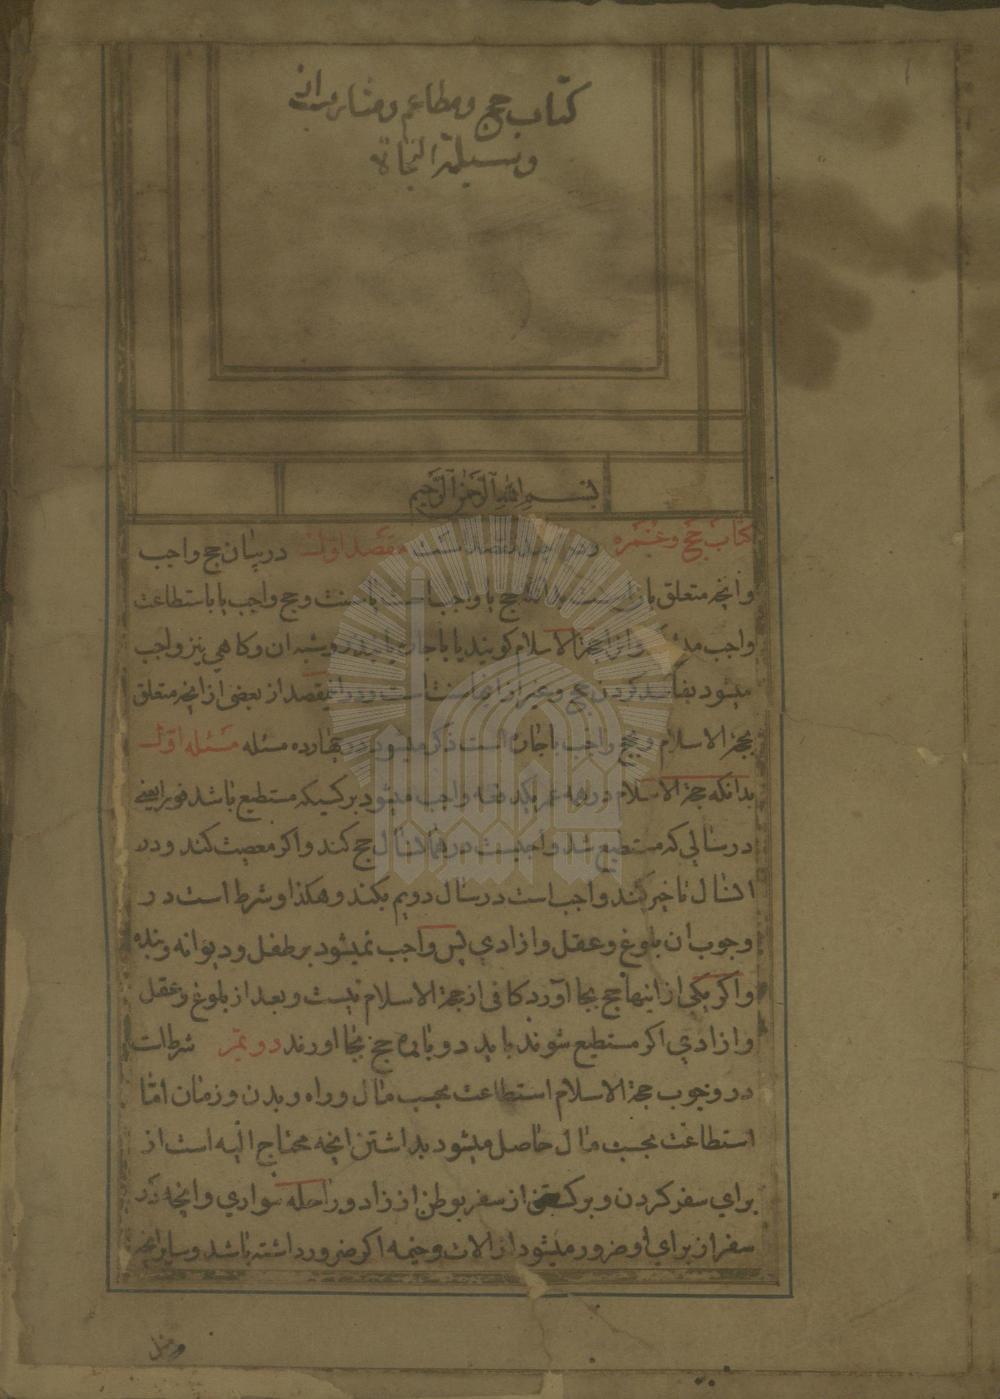 کتاب حج ومطاعم ومشارب از
وسیلة النجاة
بسم الله الرحمن الرحیم
کتاب حج وعمره ودر چند مقصد است مقصد اول در بیان حج واجب
وانچه متعلق بان است بدانکه حج یا واجب است یا سنت وحج واجب یا باستطاعت
واجب میشود وانرا حجة الاسلام کویند یا باجاره یا بنذر وشبه ان وکاهی نیز واجب
میشود بفاسد کردن حج وغیر از اینها سنت است ودر این مقصد از بعضی از انچه متعلق
بحجة الاسلام وحج واجب باجاره است ذکر میشود در چهارده مسئله مسئله اول
بدانکه حجة الاسلام در همه عمر یکدفعه واجب میشود بر کسیکه مستطیع باشد فورا یعنی
در سالی که مستطیع شد واجبست در همان سال حج کند واکر معصیت کند ودر
انسال تاخیر کند واجب است در سال دویم بکند وهکذا وشرط است در
وجوب ان بلوغ وعقل وازادی پس واجب نمیشود بر طفل ودیوانه وبنده
واکر یکی از اینها حج بجا آورد کافی از حجة الاسلام نیست وبعد از بلوغ وعقل
وازادی اکر مستطیع شوند باید دوباره حج بجا اورند دویم شرطست
در وجوب حجة الاسلام استطاعت بحسب مال وراه وبدن وزمان اما
استطاعت بحسب مال حاصل میشود بداشتن انچه محتاج الیه است از
برای سفر کردن وبرکشتن از سفر بوطن از زاد وراحله سواری وانچه در
سفر از برای او ضرور میشود از الات وخیمه اکر ضرور داشته باشد وسایر انچه